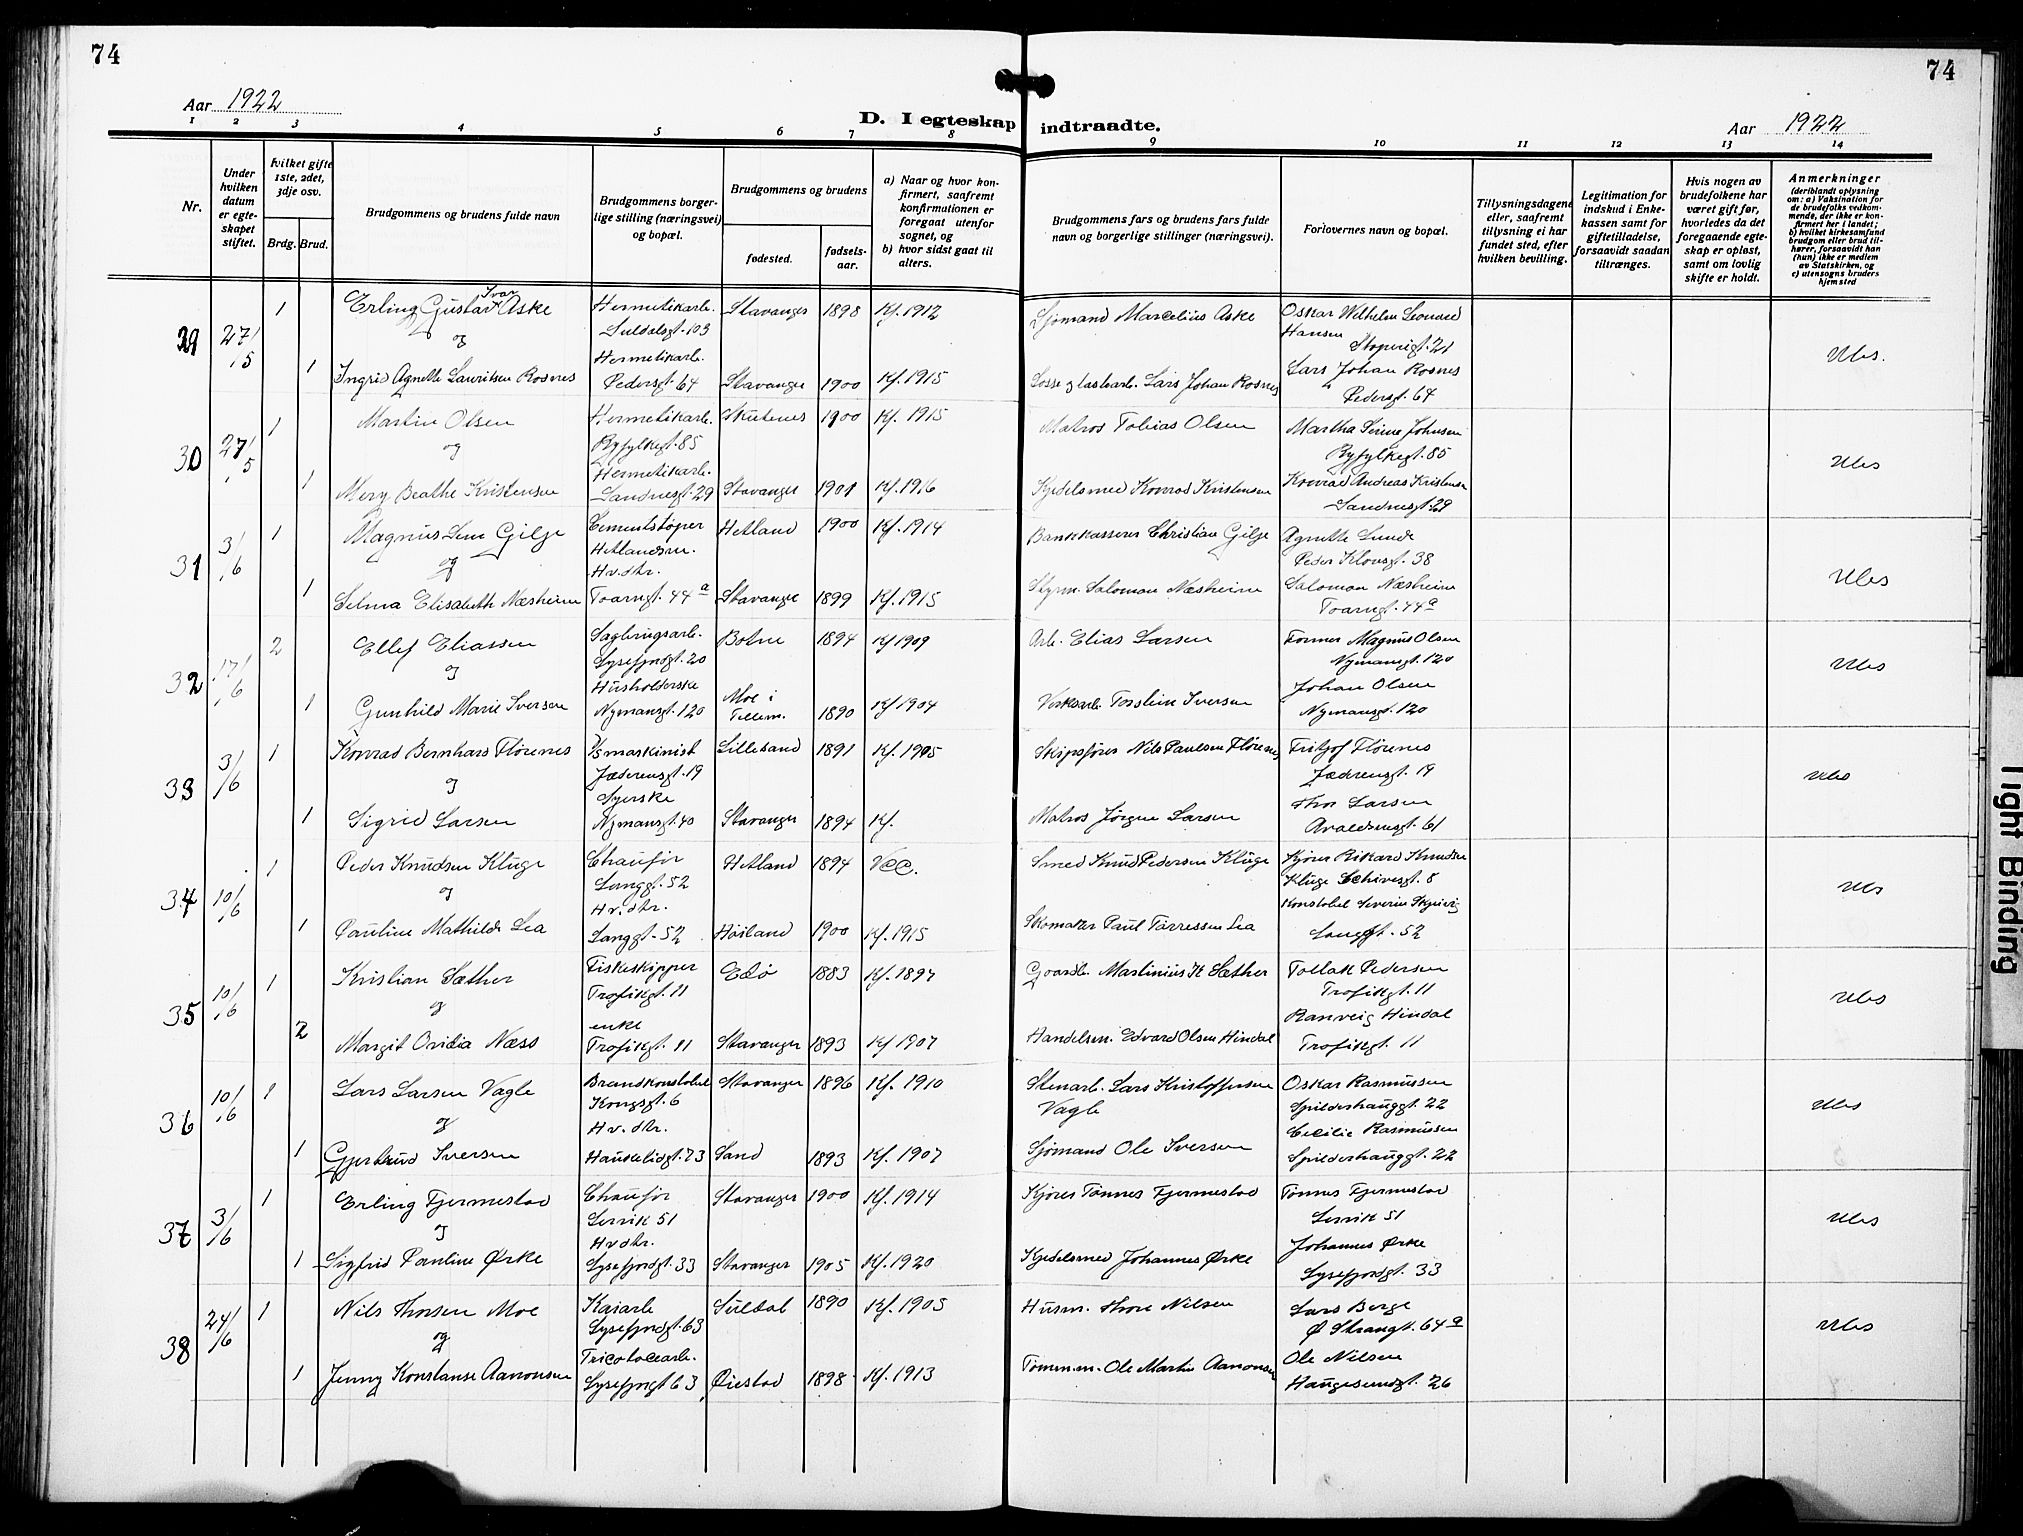 74
74
Aar 1922
D. I egteskap indtraadte.
Aar 1922
1 2 3 4 5 6 7 8 9 10 11 12 13 14
Nr.
Under hvilken datum er egteskapet stiftet.
hvilket gifte 1ste, 2det, 3dje osv.
Brdg. Brud.
Brudgommens og brudens fulde navn
Brudgommens borgerlige stilling (næringsvei) og bopæl.
Brudgommens og brudens
fødested.
fødselsaar.
a) Naar og hvor konfirmert, saafremt konfirmationen er foregaat utenfor sognet, og
b) hvor sidst gaat til alters.
Brudgommens fars og brudens fars fulde navn og borgerlige stillinger (næringsvei).
Forlovernes navn og bopæl.
Tillysningsdagene eller, saafremt tillysning ei har fundet sted, efter hvilken bevilling.
Legitimation for indskud i Enkekassen samt for giftetilladelse, forsaavidt saadan tiltrænges.
Hvis nogen av brudefolkene har været gift før, hvorledes da det foregaaende egteskap er opløst, samt om lovlig skifte er holdt.
Anmerkninger
(deriblandt oplysning om: a) Vaksination for de brudefolks vedkommende, der ikke er konfirmert her i landet; b) hvilket kirkesamfund brudgom eller brud tilhører, forsaavidt han (hun) ikke er medlem av Statskirken, og c) utensogns bruders hjemsted
29 27/5 1 Erling Gustav Ivar Aske Hermetikarb. Suldalsgt. 103 Stavanger 1898 Kf. 1912 Sjømand Marcelius Aske Oskar Wilhelm Leonard Hansen
og
1 Ingrid Agnethe Lauritsen Rosnes Hermetikarb. Pedersgt. 64 Stavanger 1900 Kf. 1915 Lars Johan Rosnes Lars Johan Rosnes Pedersgt. 64
30 27/5 1 Martin Olsen Hermetikarb. Ryfylkegt. 85 Skutenes 1900 Kf. 1915 Matros Tobias Olsen Martha Serine Johnsen Ryfylkegt. 85
og
1 Mery Beathe Kristensen Hermetikarb. Sandnesgt. 29 Stavanger 1901 Kf. 1916 Kjedelsmed Konrad Kristensen Konrad Andreas Kristensen Sandnesgt. 29
31 3/6 1 Magnus Lem Gilje Cementstøper Hetlandsm. Hetland 1900 Kf. 1914 Bankkasserer Christian Gilje Agnethe Lunde Peder Klowsgt. 38
og
1 Selma Elisabeth Næsheim Hv. dtr. Toarngt. 44a Stavanger 1899 Kf. 1915 Styrm. Salomon Næsheim Salomon Næsheim Toarngt. 44a
32 17/6 2 Ellef Eliassen Sagbrugsarb. Lysefjordgt. 20 Botne 1894 Kf 1909 Arb. Elias Larsen Former Magnus Olsen Nymansgt. 120
og
1 Gunhild Marie Iversen Husholderske Nymansgt. 120 Moe i Tellem. 1890 Kf 1904 Torstein Iversen Johan Olsen Nymansgt. 120
33 3/6 1 Konrad Bernhard Flørenes Jæderensgt. 19 Lillesand 1891 Kf. 1905 Skipsfører Nils Paulsen Flørenes Fritjof Flørenes Jæderengt. 19
og
1 Sigrid Larsen Syerske Nymansgt. 40 Stavanger 1894 Kf. Matros Jørgen Larsen Thor Larsen Avaldsnesgt. 61
34 10/6 1 Peder Knudsen Kluge Chaufør Langgt. 52 Hetland 1894 Smed Knud Pedersen Kluge Kjører Rikard Knudsen Kluge Schivesgt. 8
og
1 Pauline Mathilde Lea Hv. dtr. Langgt. 52 Høiland 1900 Kf. 1915 Skomaker Paul Tørressen Lea Konstabel Severin Langgt. 52
35 10/6 1 Kristian Sæther Fiskeskipper Trofikgt. 11 Edø 1883 Kf. 1897 Gaardb. Martinius K Sæther Tollak Pedersen Trofikgt. 11
og
2 Margit Ovidia Næss enke Trofikgt. 11 Stavanger 1893 Kf 1907 Handelsm. Edvard Olsen Hindal Ranveig Hindal Trofikgt. 11
36 10/6 1 Lars Larsen Vagle Brandkonstabel Kongsgt. 6 Stavanger 1896 Kf. 1910 Stenarb. Lars Kristoffersen Vagle Oskar Rasmussen Spilderhauggt. 22
og
1 Gjertrud Iversen Hv. dtr. Haukelidgt. 73 Sand 1893 Kf. 1907 Sjømand Ole Iversen Cecilie Rasmussen Spilderhauggt. 22
37 3/6 1 Erling Tjermestad Chaufør Lervik 51 Stavanger 1900 Kf. 1914 Kjører Tønnes Tjermestad Tønnes Tjermestad Lervik 51
og
1 Sigfrid Pauline Ørke Hv dtr. Lysefjordgt. 33 Stavanger 1905 Kf. 1920 Kjedelsmed Johannes Ørke Johannes Ørke Lysefjordgt. 33
38 24/6 1 Nils Thorsen Moe Kaiarb Lysefjordgt. 63 Suldal 1890 Kf. 1905 Husm. Thore Nilsen Lars Berge Ø Strangt. 64a
og
1 Jenny Konstanse Aanonsen Tricotagearb. Lysefjorgt 63 Øiestad 1898 Kf. 1913 Tømm.m. Ole Martin Aanonsen Ole Nilsen Haugesundgt. 26
Tight Binding